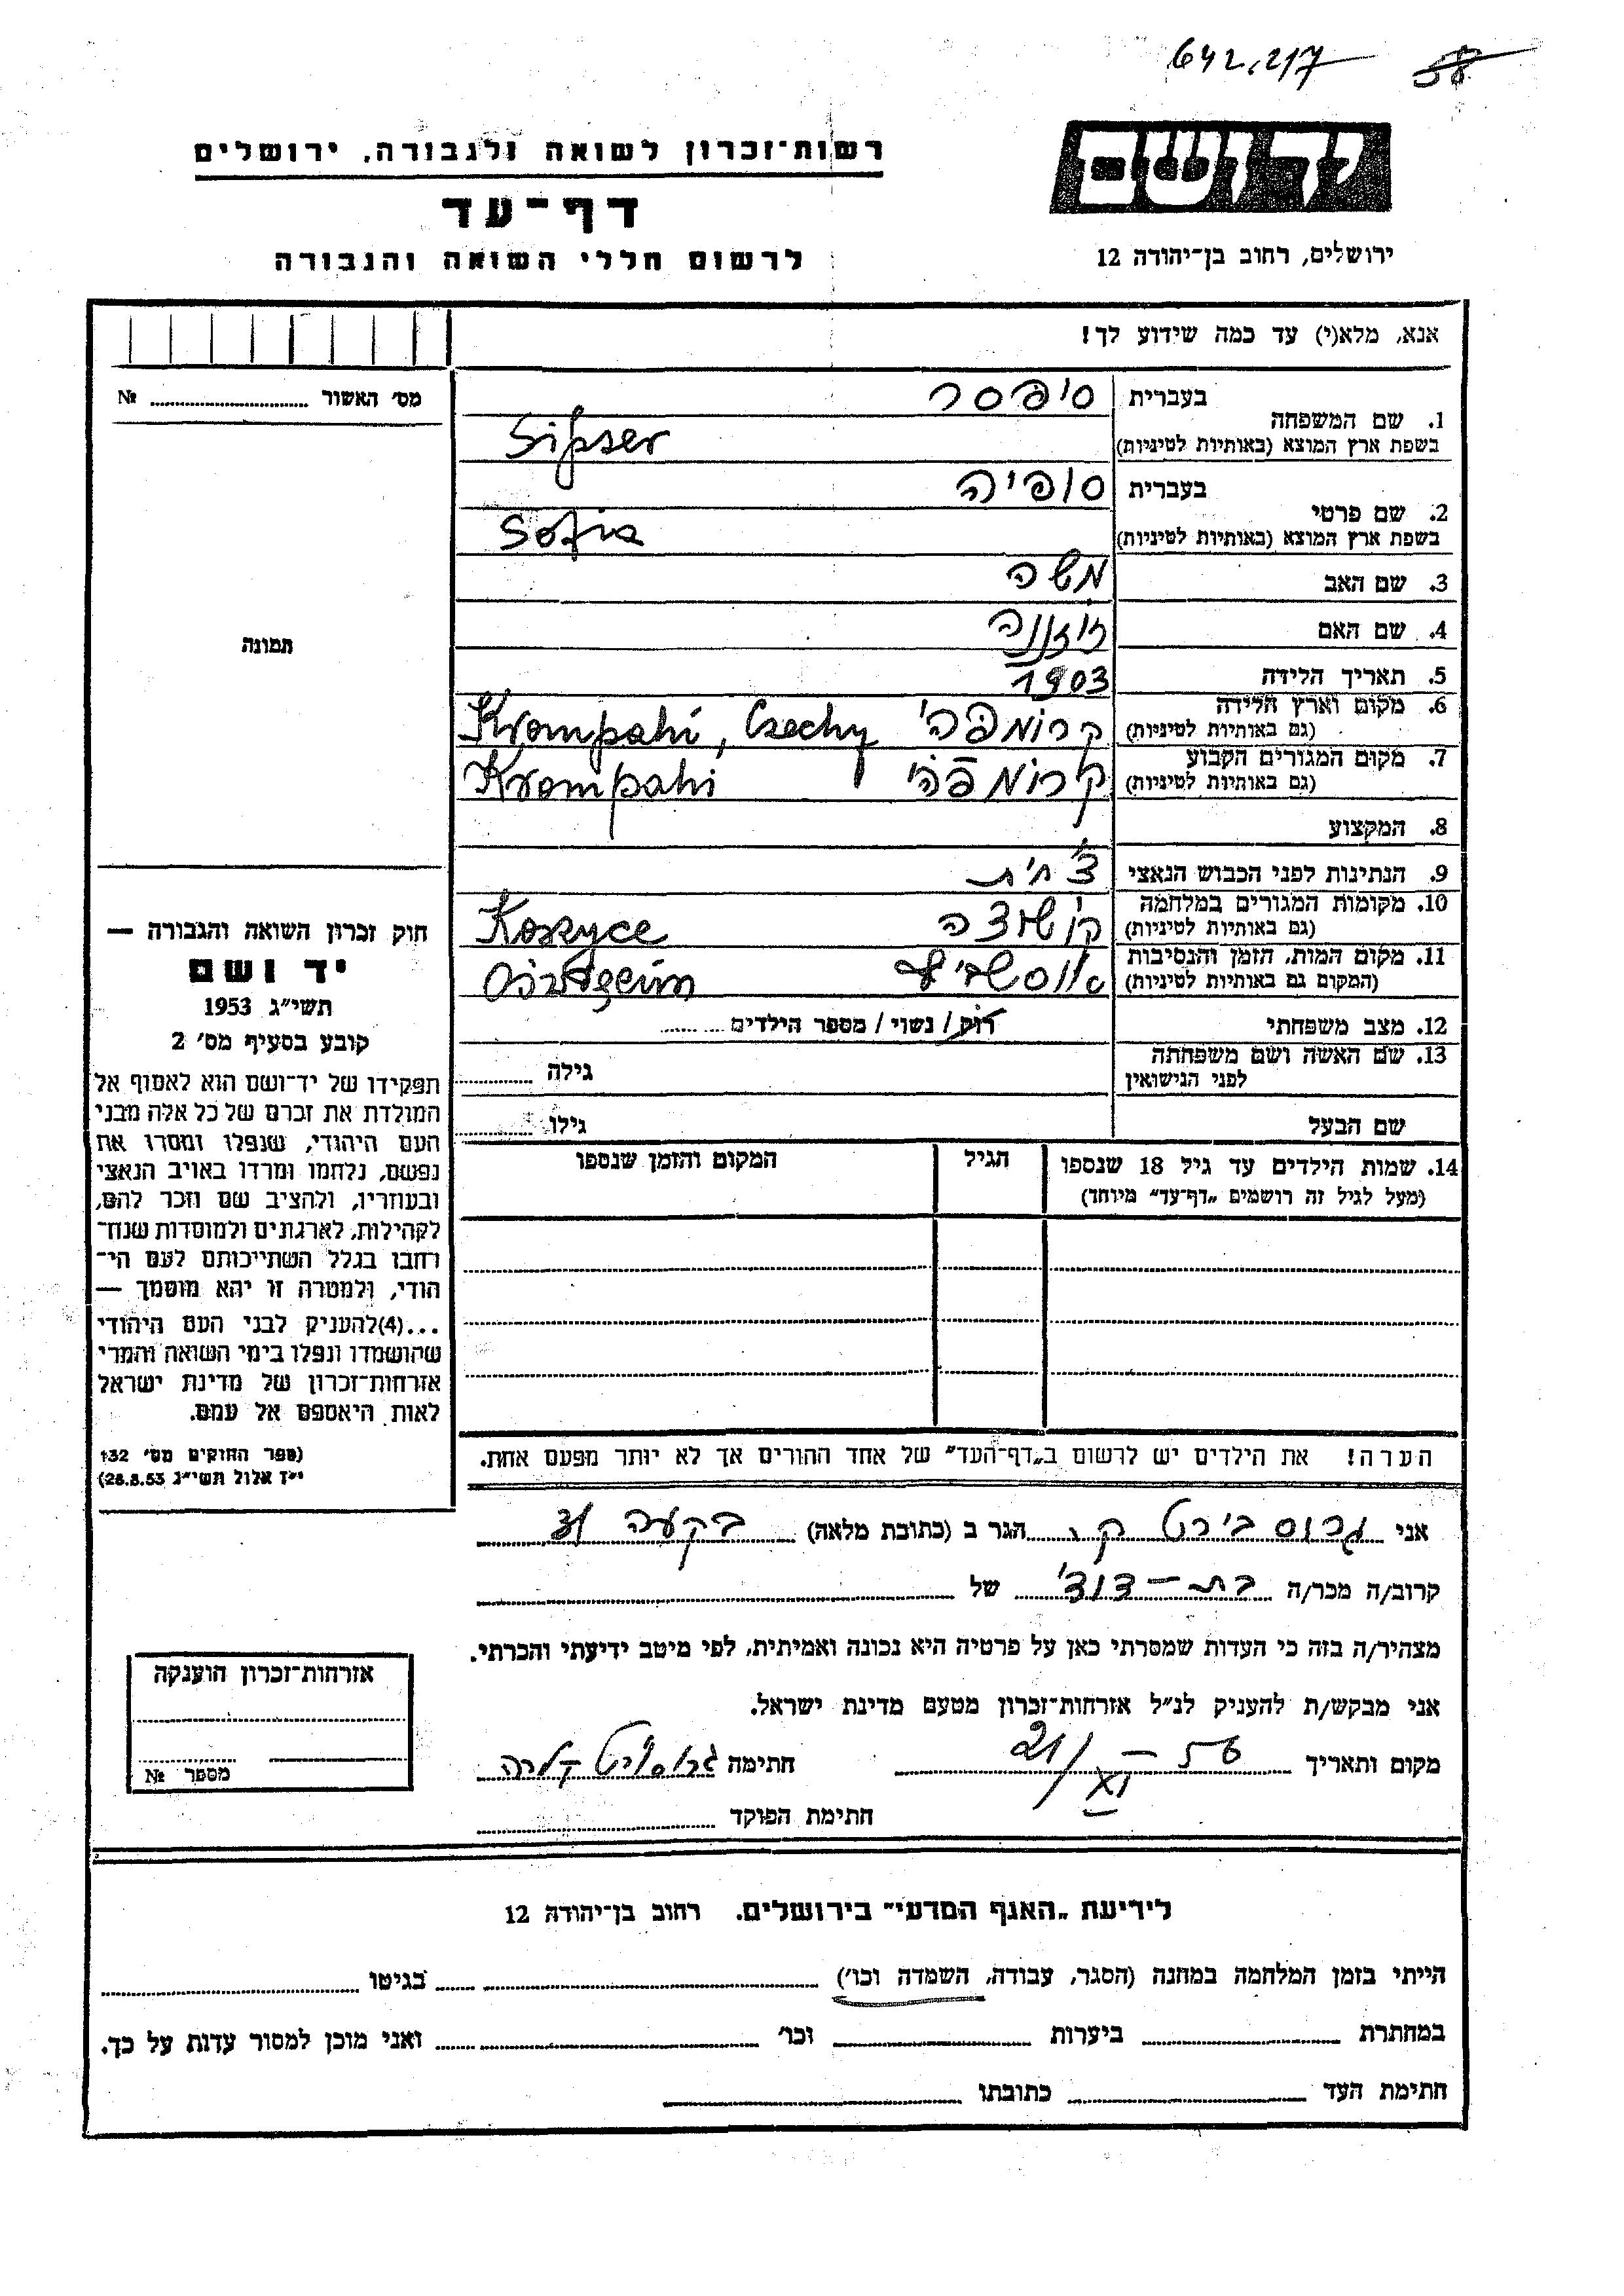 642.217 58
רשות־זכרון לשואה ולגבורה, ירושלים
דף־עד
לרשום חללי השואה והגבורה
יד ושם
ירושלים, רחוב בן־יהודה 12
אנא, מלא(י) עד כמה שידוע לך!
מס' האשור № ........
תמונה
1. שם המשפחה בעברית סיפסר
בשפת ארץ המוצא (באותיות לטיניות) Sipser
2. שם פרטי בעברית סופיה
בשפת ארץ המוצא (באותיות לטיניות) Sofia
3. שם האב משה
4. שם האם
5. תאריך הלידה 1903
6. מקום וארץ הלידה קרומפהי Krompahi, Czechy
(גם באותיות לטיניות)
7. מקום המגורים הקבוע קרומפהי Krompahi
(גם באותיות לטיניות)
8. המקצוע
9. הנתינות לפני הכבוש הנאצי צ'חית
10. מקומות המגורים במלחמה קושוצה Koszyce
(גם באותיות לטיניות)
11. מקום המות, הזמן והנסיבות
(המקום גם באותיות לטיניות)
12. מצב משפחתי רווק / נשוי / מספר הילדים ........
13. שם האשה ושם משפחתה גילה ........
לפני הנישואין
שם הבעל גילו ........
14. שמות הילדים עד גיל 18 שנספו הגיל המקום והזמן שנספו
(מעל לגיל זה רושמים „דף־עד” מיוחד)
הערה! את הילדים יש לרשום ב„דף־העד” של אחד ההורים אך לא יותר מפעם אחת.
חוק זכרון השואה והגבורה —
יד ושם
תשי״ג 1953
קובע בסעיף מס' 2
תפקידו של יד־ושם הוא לאסוף אל
המולדת את זכרם של כל אלה מבני
העם היהודי, שנפלו ומסרו את
נפשם, נלחמו ומרדו באויב הנאצי
ובעוזריו, ולהציב שם וזכר להם,
לקהילות, לארגונים ולמוסדות שנח־
רחבו בגלל השתייכותם לעם הי־
הודי, ולמטרה זו יהא מוסמך —
...(4)להעניק לבני העם היהודי
שהושמדו ונפלו בימי השואה והמרי
אזרחות־זכרון של מדינת ישראל
לאות היאספם אל עמם.
(ספר החוקים מס' 132
י״ז אלול תשי״ג 28.8.53)
אני גרוס ק. הגר ב (כתובת מלאה) בקעה
קרוב/ה מכר/ה בת-דוד של
מצהיר/ה בזה כי העדות שמסרתי כאן על פרטיה היא נכונה ואמיתית, לפי מיטב ידיעתי והכרתי.
אני מבקש/ת להעניק לנ״ל אזרחות־זכרון מטעם מדינת ישראל.
מקום ותאריך 21/XI - 56 חתימה
חתימת הפוקד
אזרחות־זכרון הוענקה
מספר №
לידיעת „האגף המדעי” בירושלים, רחוב בן־יהודה 12
הייתי בזמן המלחמה במחנה (הסגר, עבודה, השמדה וכו') בגיטו
במחתרת ביערות וכו' ואני מוכן למסור עדות על כך.
חתימת העד כתובתו